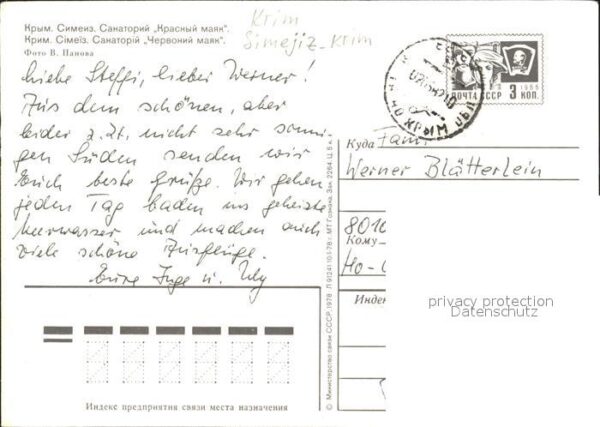 Крым. Симеиз. Санаторий „Красный маяк".
Крим. Сімеїз. Санаторій „Червоний маяк".
Фото В. Панова
Krim
Simejiz-Krim
Liebe Steffi, lieber Werner!
Aus dem schönen, aber
leider z. Zt. nicht sehr sonni-
gen Süden senden wir
Euch beste Grüße. Wir gehen
jeden Tag baden ins geheizte
Meerwasser und machen auch
viele schöne Ausflüge.
Eure Inge u.
ПОЧТА СССР 3 КОП.
1966
КРЫМ
Куда Fam.
Werner Blätterlein
8010
Кому
Ho-
Индекс
privacy protection
Datenschutz
Индекс предприятия связи места назначения
© Министерство связи СССР, 1978 Л 91241 10-1-78 г. МТ Гознака. Зак. 2264. Ц. 5 к.